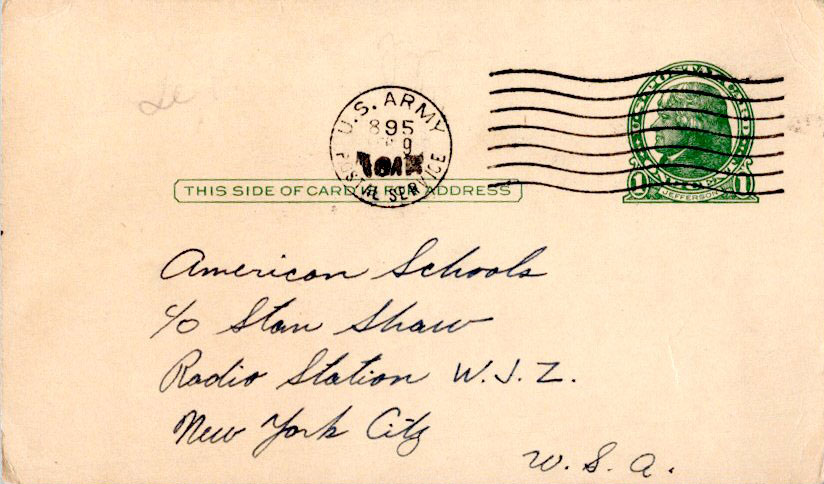 U.S. ARMY
895
9
POSTAL SERVICE
THIS SIDE OF CARD IS FOR ADDRESS
1 1
JEFFERSON
American Schools
c/o Stan Shaw
Radio Station W.J.Z.
New York City
U.S.A.